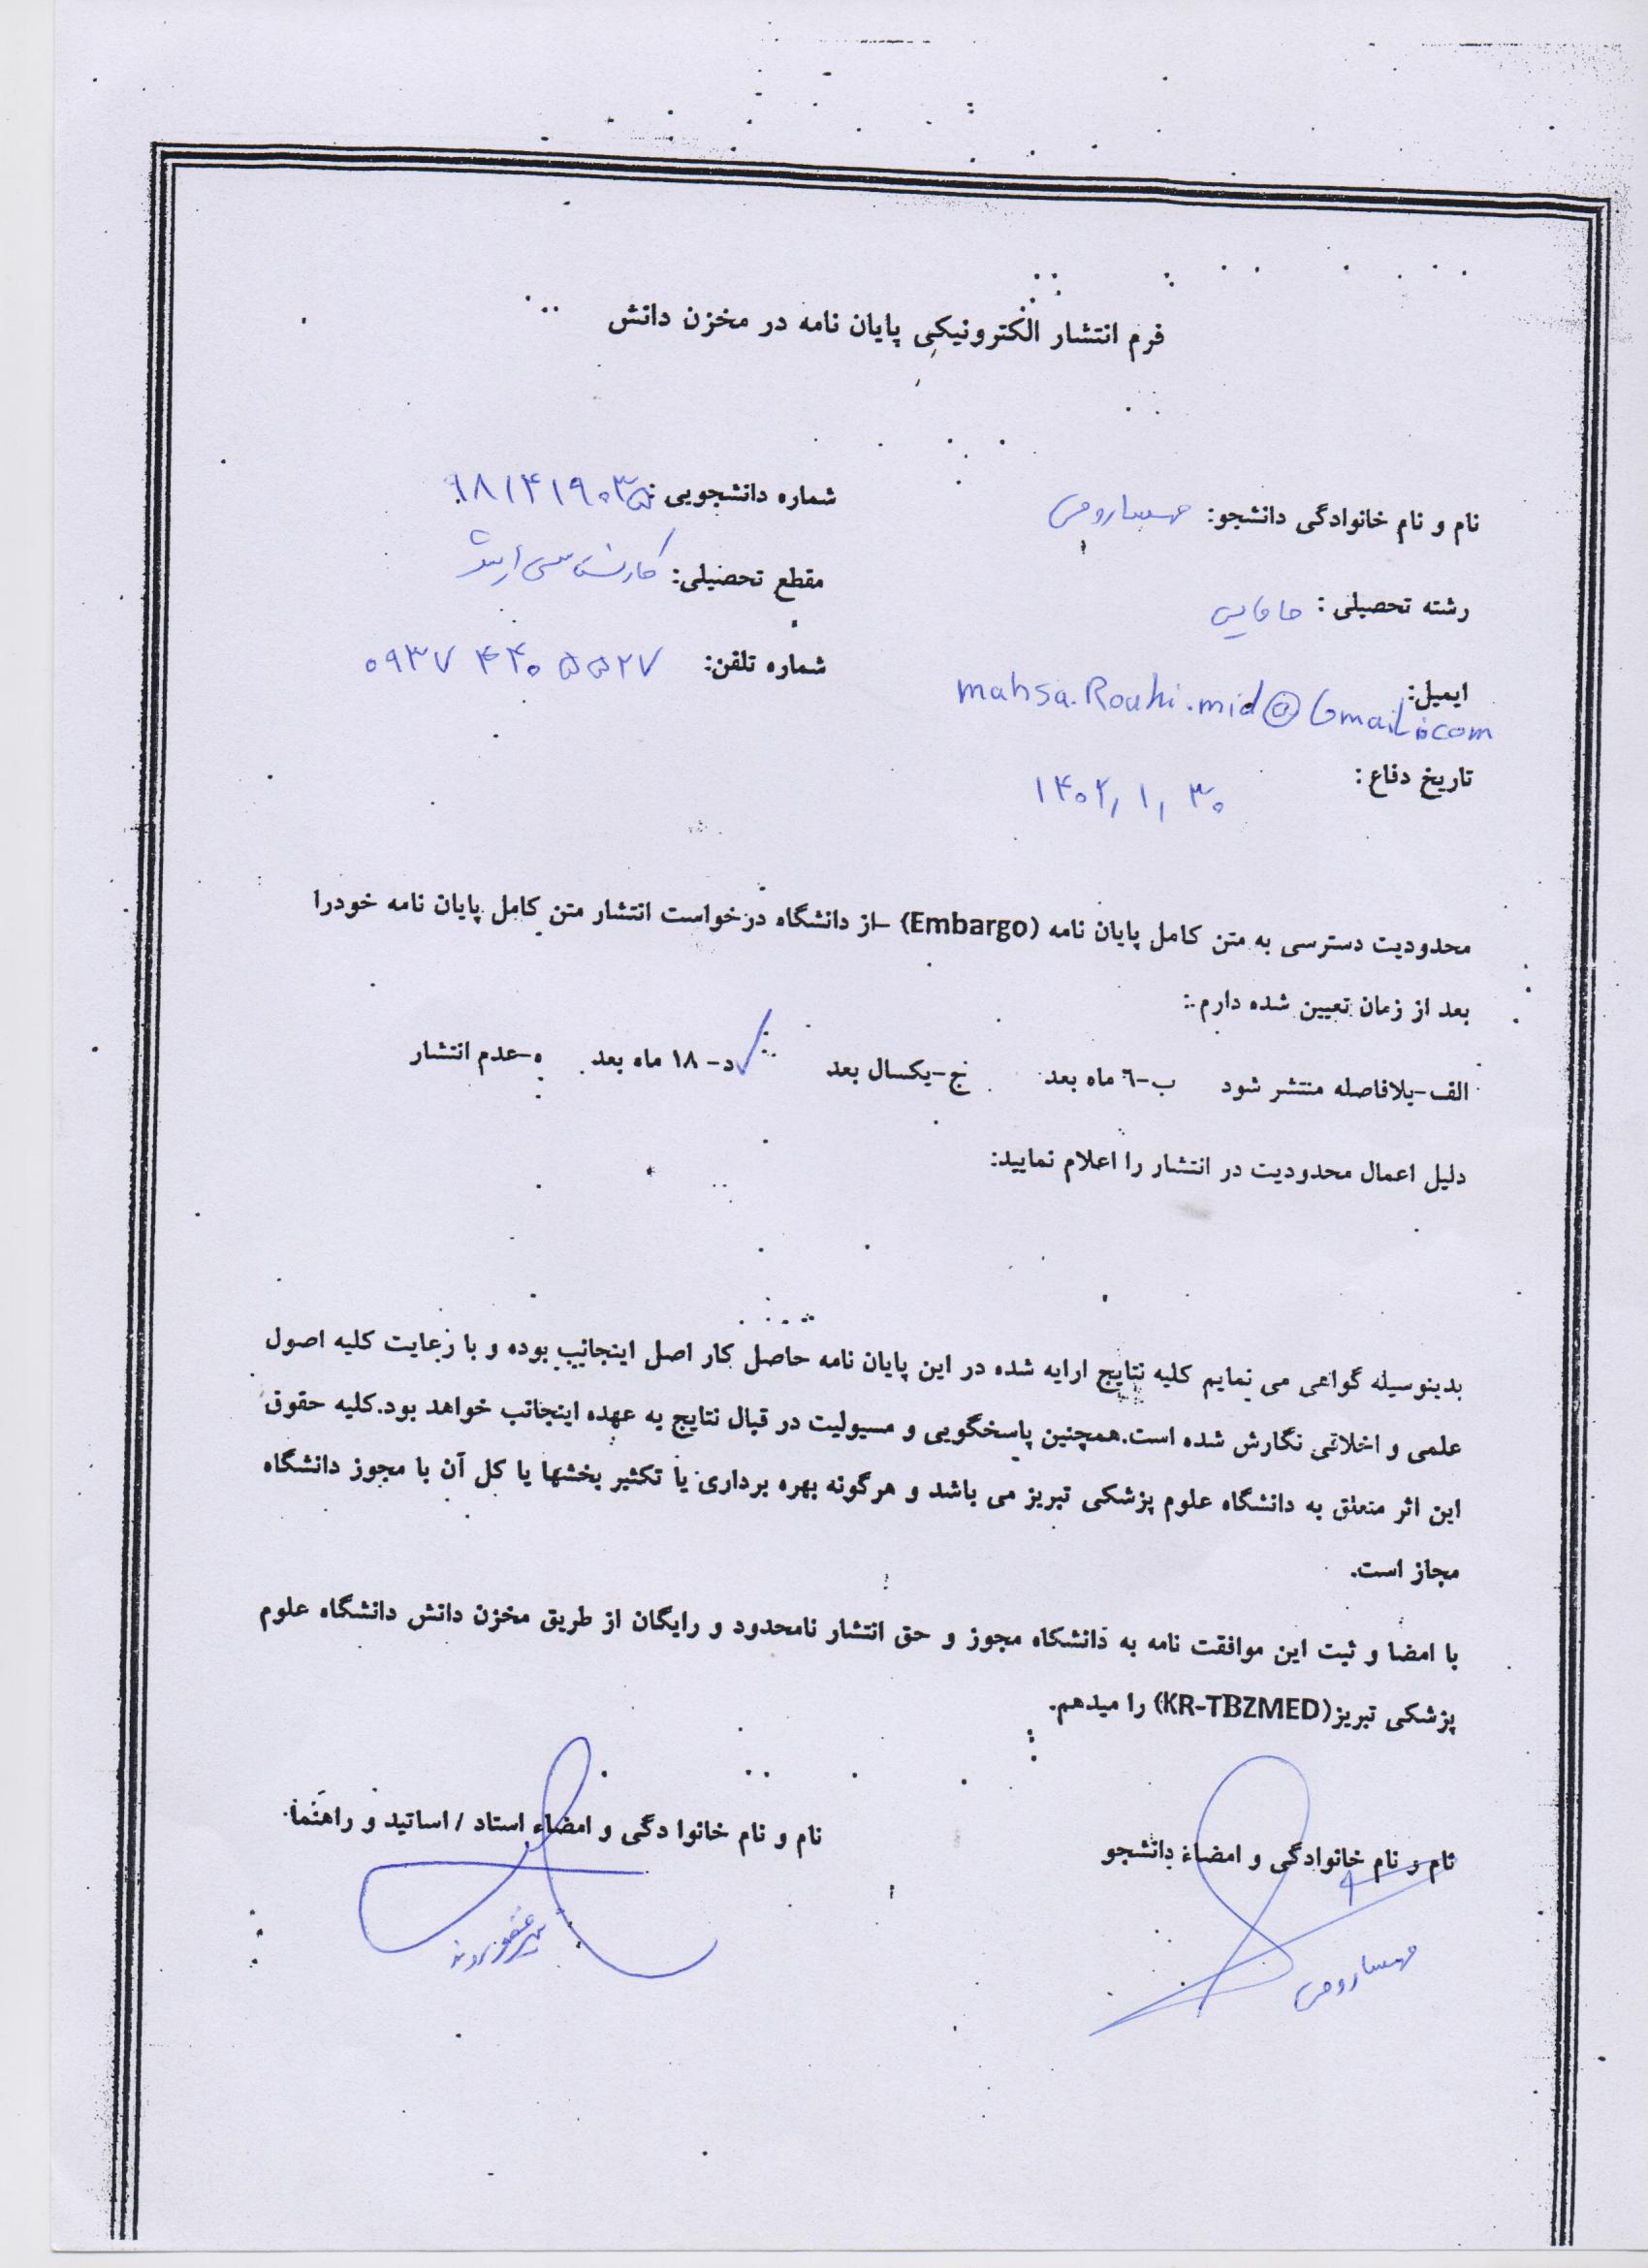 فرم انتشار الکترونیکی پایان نامه در مخزن دانش
نام و نام خانوادگی دانشجو: مهسا روحی شماره دانشجویی: ۹۸۱۴۱۹۰۳۵
رشته تحصیلی: مامایی مقطع تحصیلی: کارشناسی ارشد
ایمیل: mahsa.Rouhi.mid@Gmail.com شماره تلفن: ۰۹۳۷ ۴۴۰ ۵۵۲۷
تاریخ دفاع: ۱۴۰۲٫۱٫۳۰
محدودیت دسترسی به متن کامل پایان نامه (Embargo) -از دانشگاه درخواست انتشار متن کامل پایان نامه خودرا
بعد از زمان تعیین شده دارم.:
الف-بلافاصله منتشر شود ب-٦ ماه بعد ج-یکسال بعد د- ۱۸ ماه بعد ه-عدم انتشار
دلیل اعمال محدودیت در انتشار را اعلام نمایید:
بدینوسیله گواهی می نمایم کلیه نتایج ارایه شده در این پایان نامه حاصل کار اصل اینجانب بوده و با رعایت کلیه اصول
علمی و اخلاقی نگارش شده است.همچنین پاسخگویی و مسیولیت در قبال نتایج به عهده اینجانب خواهد بود.کلیه حقوق
این اثر متعلق به دانشگاه علوم پزشکی تبریز می باشد و هرگونه بهره برداری یا تکثیر بخشها یا کل آن با مجوز دانشگاه
مجاز است.
با امضا و ثبت این موافقت نامه به دانشگاه مجوز و حق انتشار نامحدود و رایگان از طریق مخزن دانش دانشگاه علوم
پزشکی تبریز(KR-TBZMED) را میدهم.
نام و نام خانوادگی و امضاء دانشجو نام و نام خانوا دگی و امضاء استاد / اساتید و راهنما
مهسا روحی